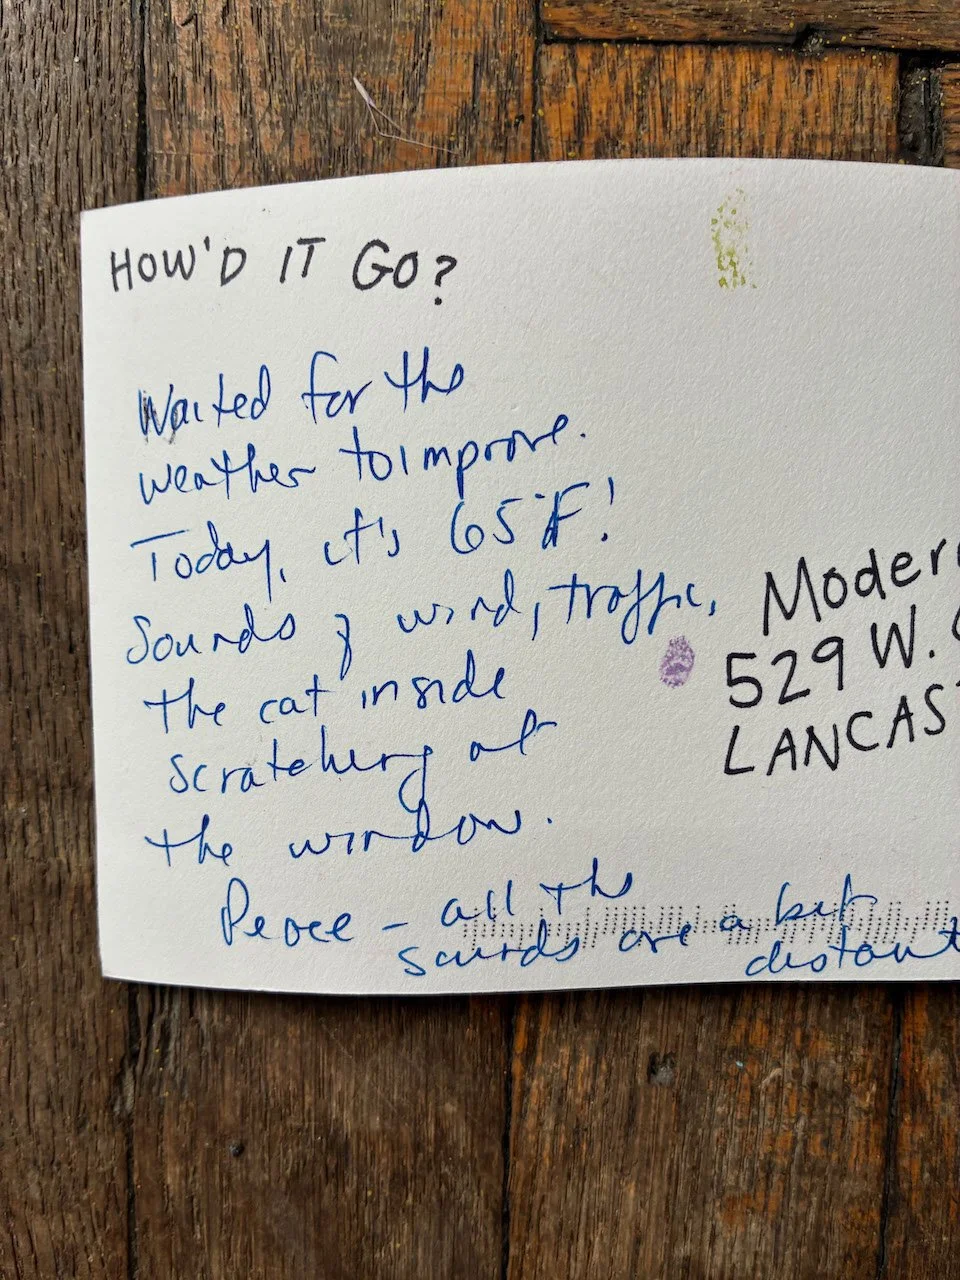 HOW'D IT GO?
Waited for the
weather to improve.
Today, it's 65°F!
Sounds of wind, traffic,
the cat inside
scratching at
the window.
Peace – all the
sounds are a bit
distant
Modern
529 W.
LANCAS